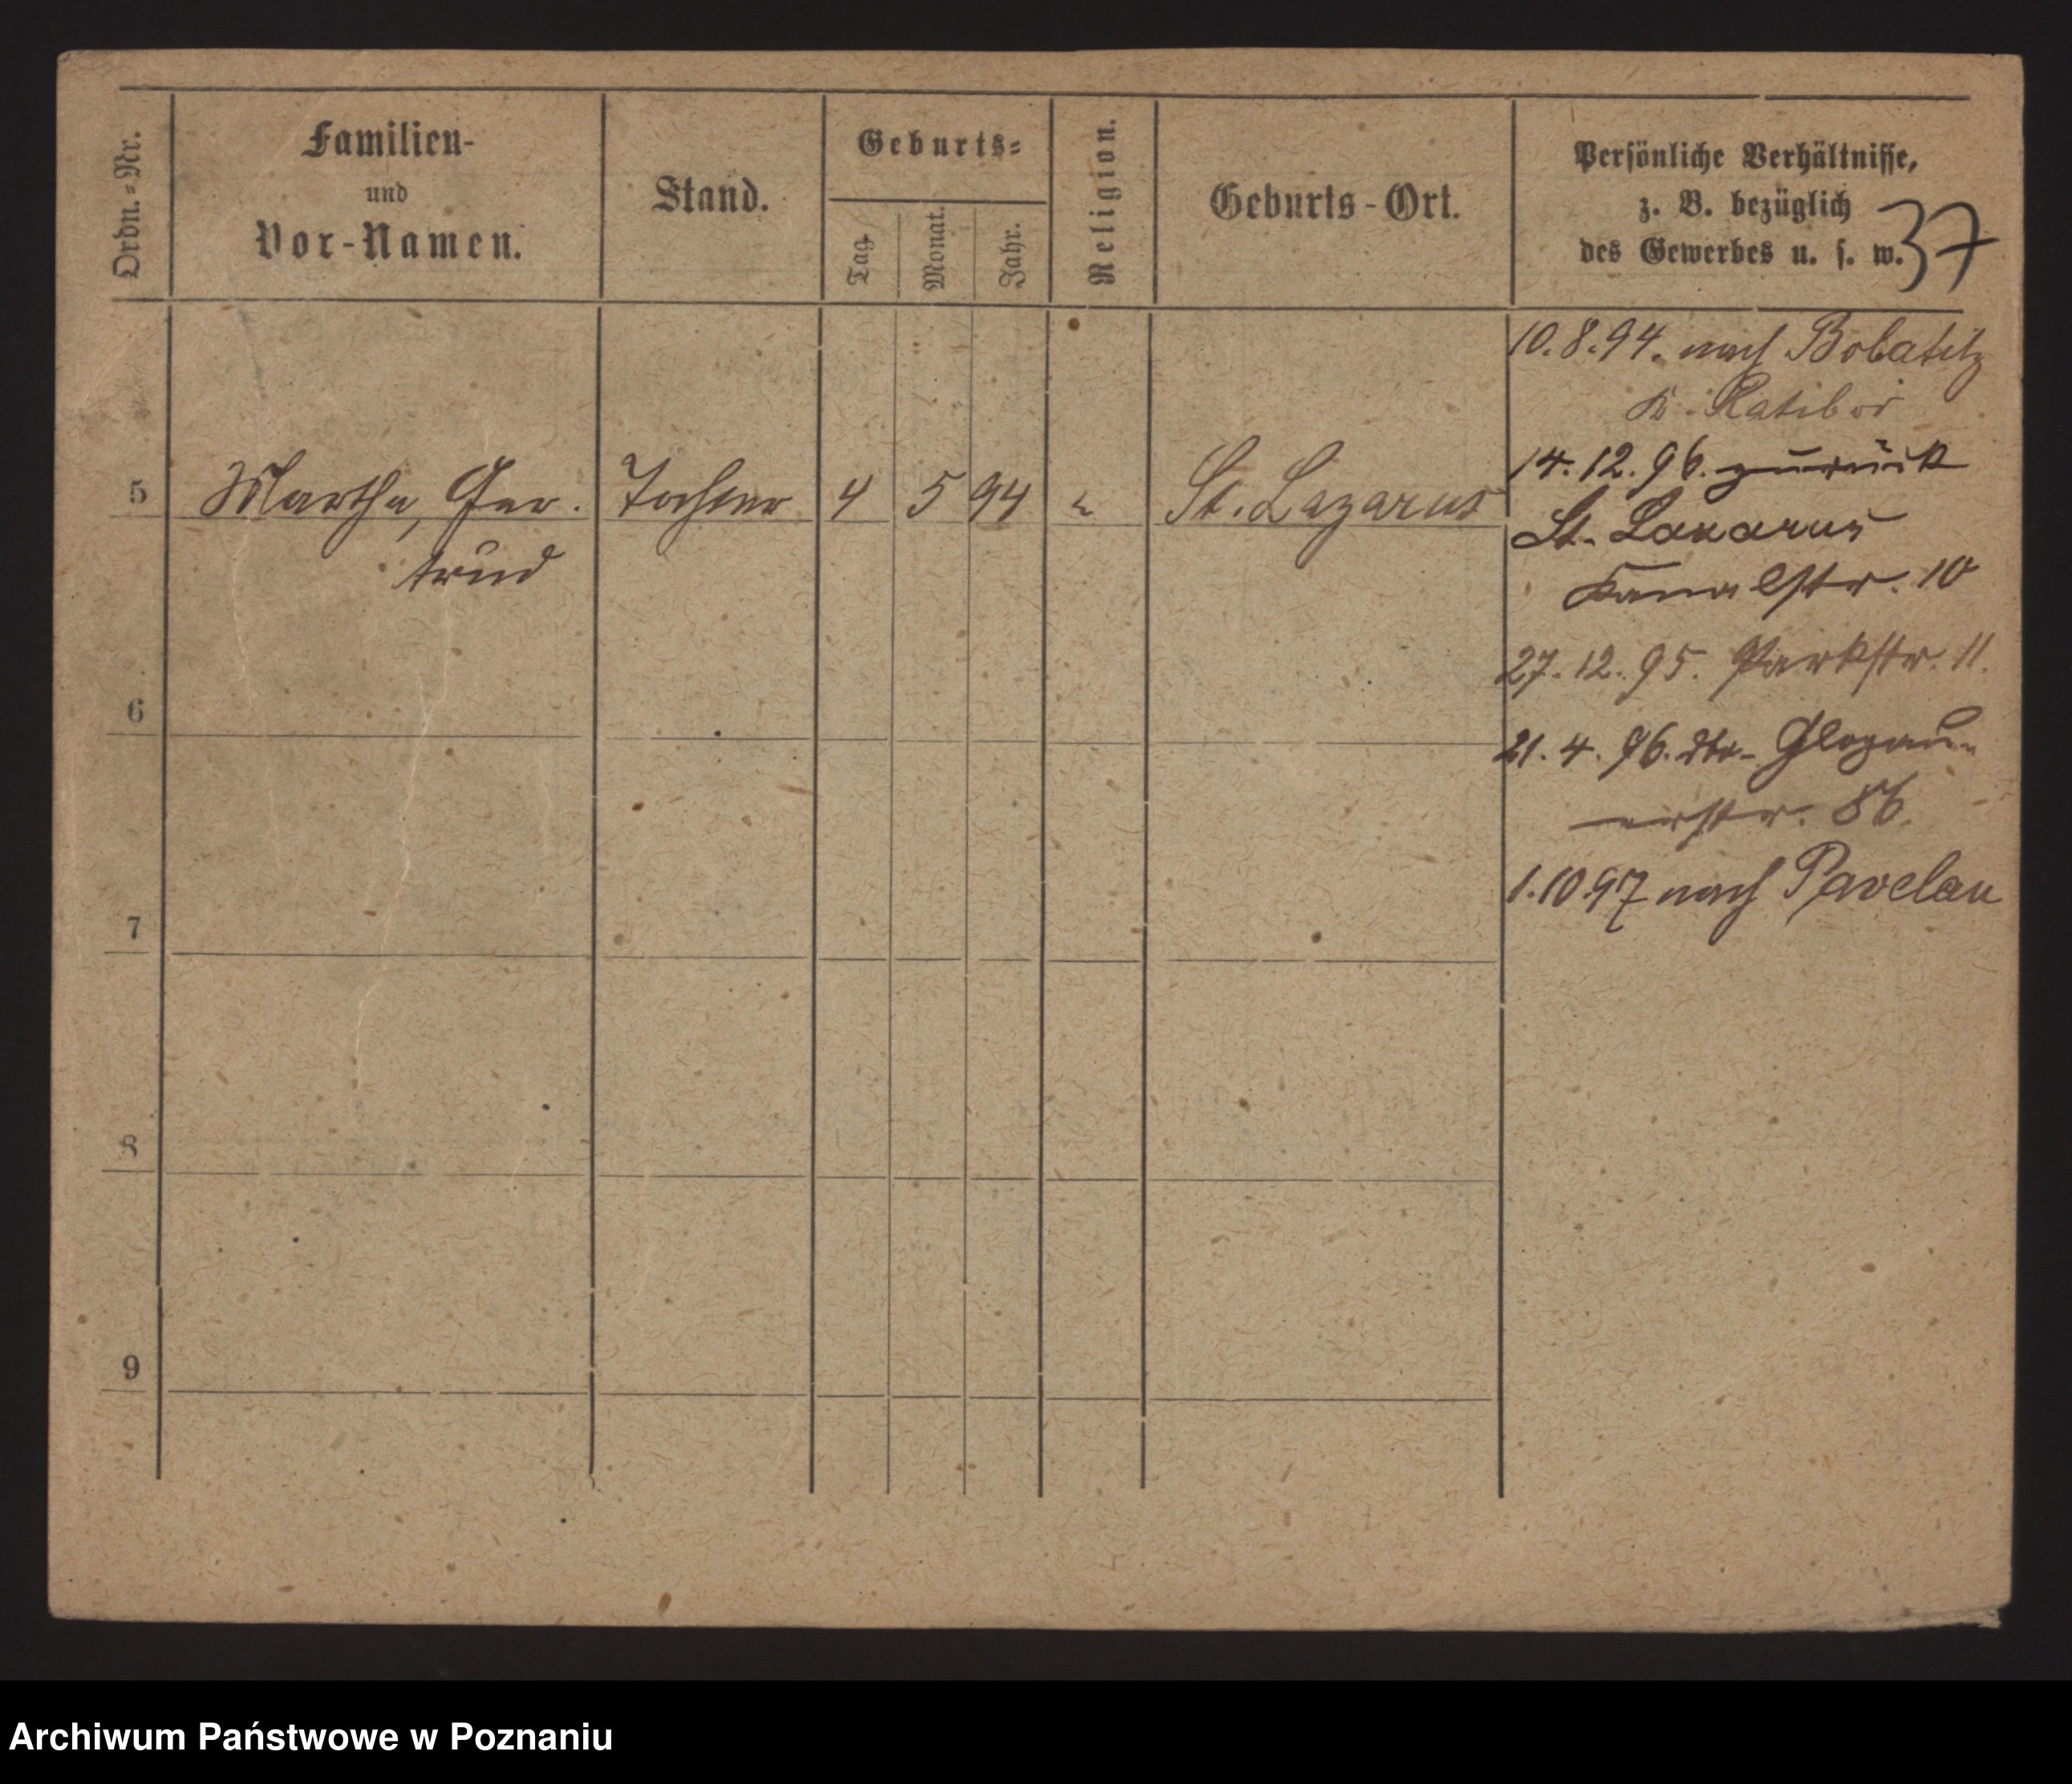 Ordn.-Nr.
Familien-
und
Vor-Namen.
Stand.
Geburts-
Tag
Monat.
Jahr.
Religion.
Geburts-Ort.
Persönliche Verhältnisse,
z. B. bezüglich
des Gewerbes u. s. w.
37
10.8.94. nach Bobatitz
K. Ratibor
14.12.96. zurück
St. Lazarus
Kanalstr. 10
5 Martha, Ger. Tochter 4 5 94 St. Lazarus
trud
27.12.95. Parkstr. 11.
6
21.4.96. Glogau-
erstr. 86.
1.10.97 nach Pavelau
7
8
9
Archiwum Państwowe w Poznaniu